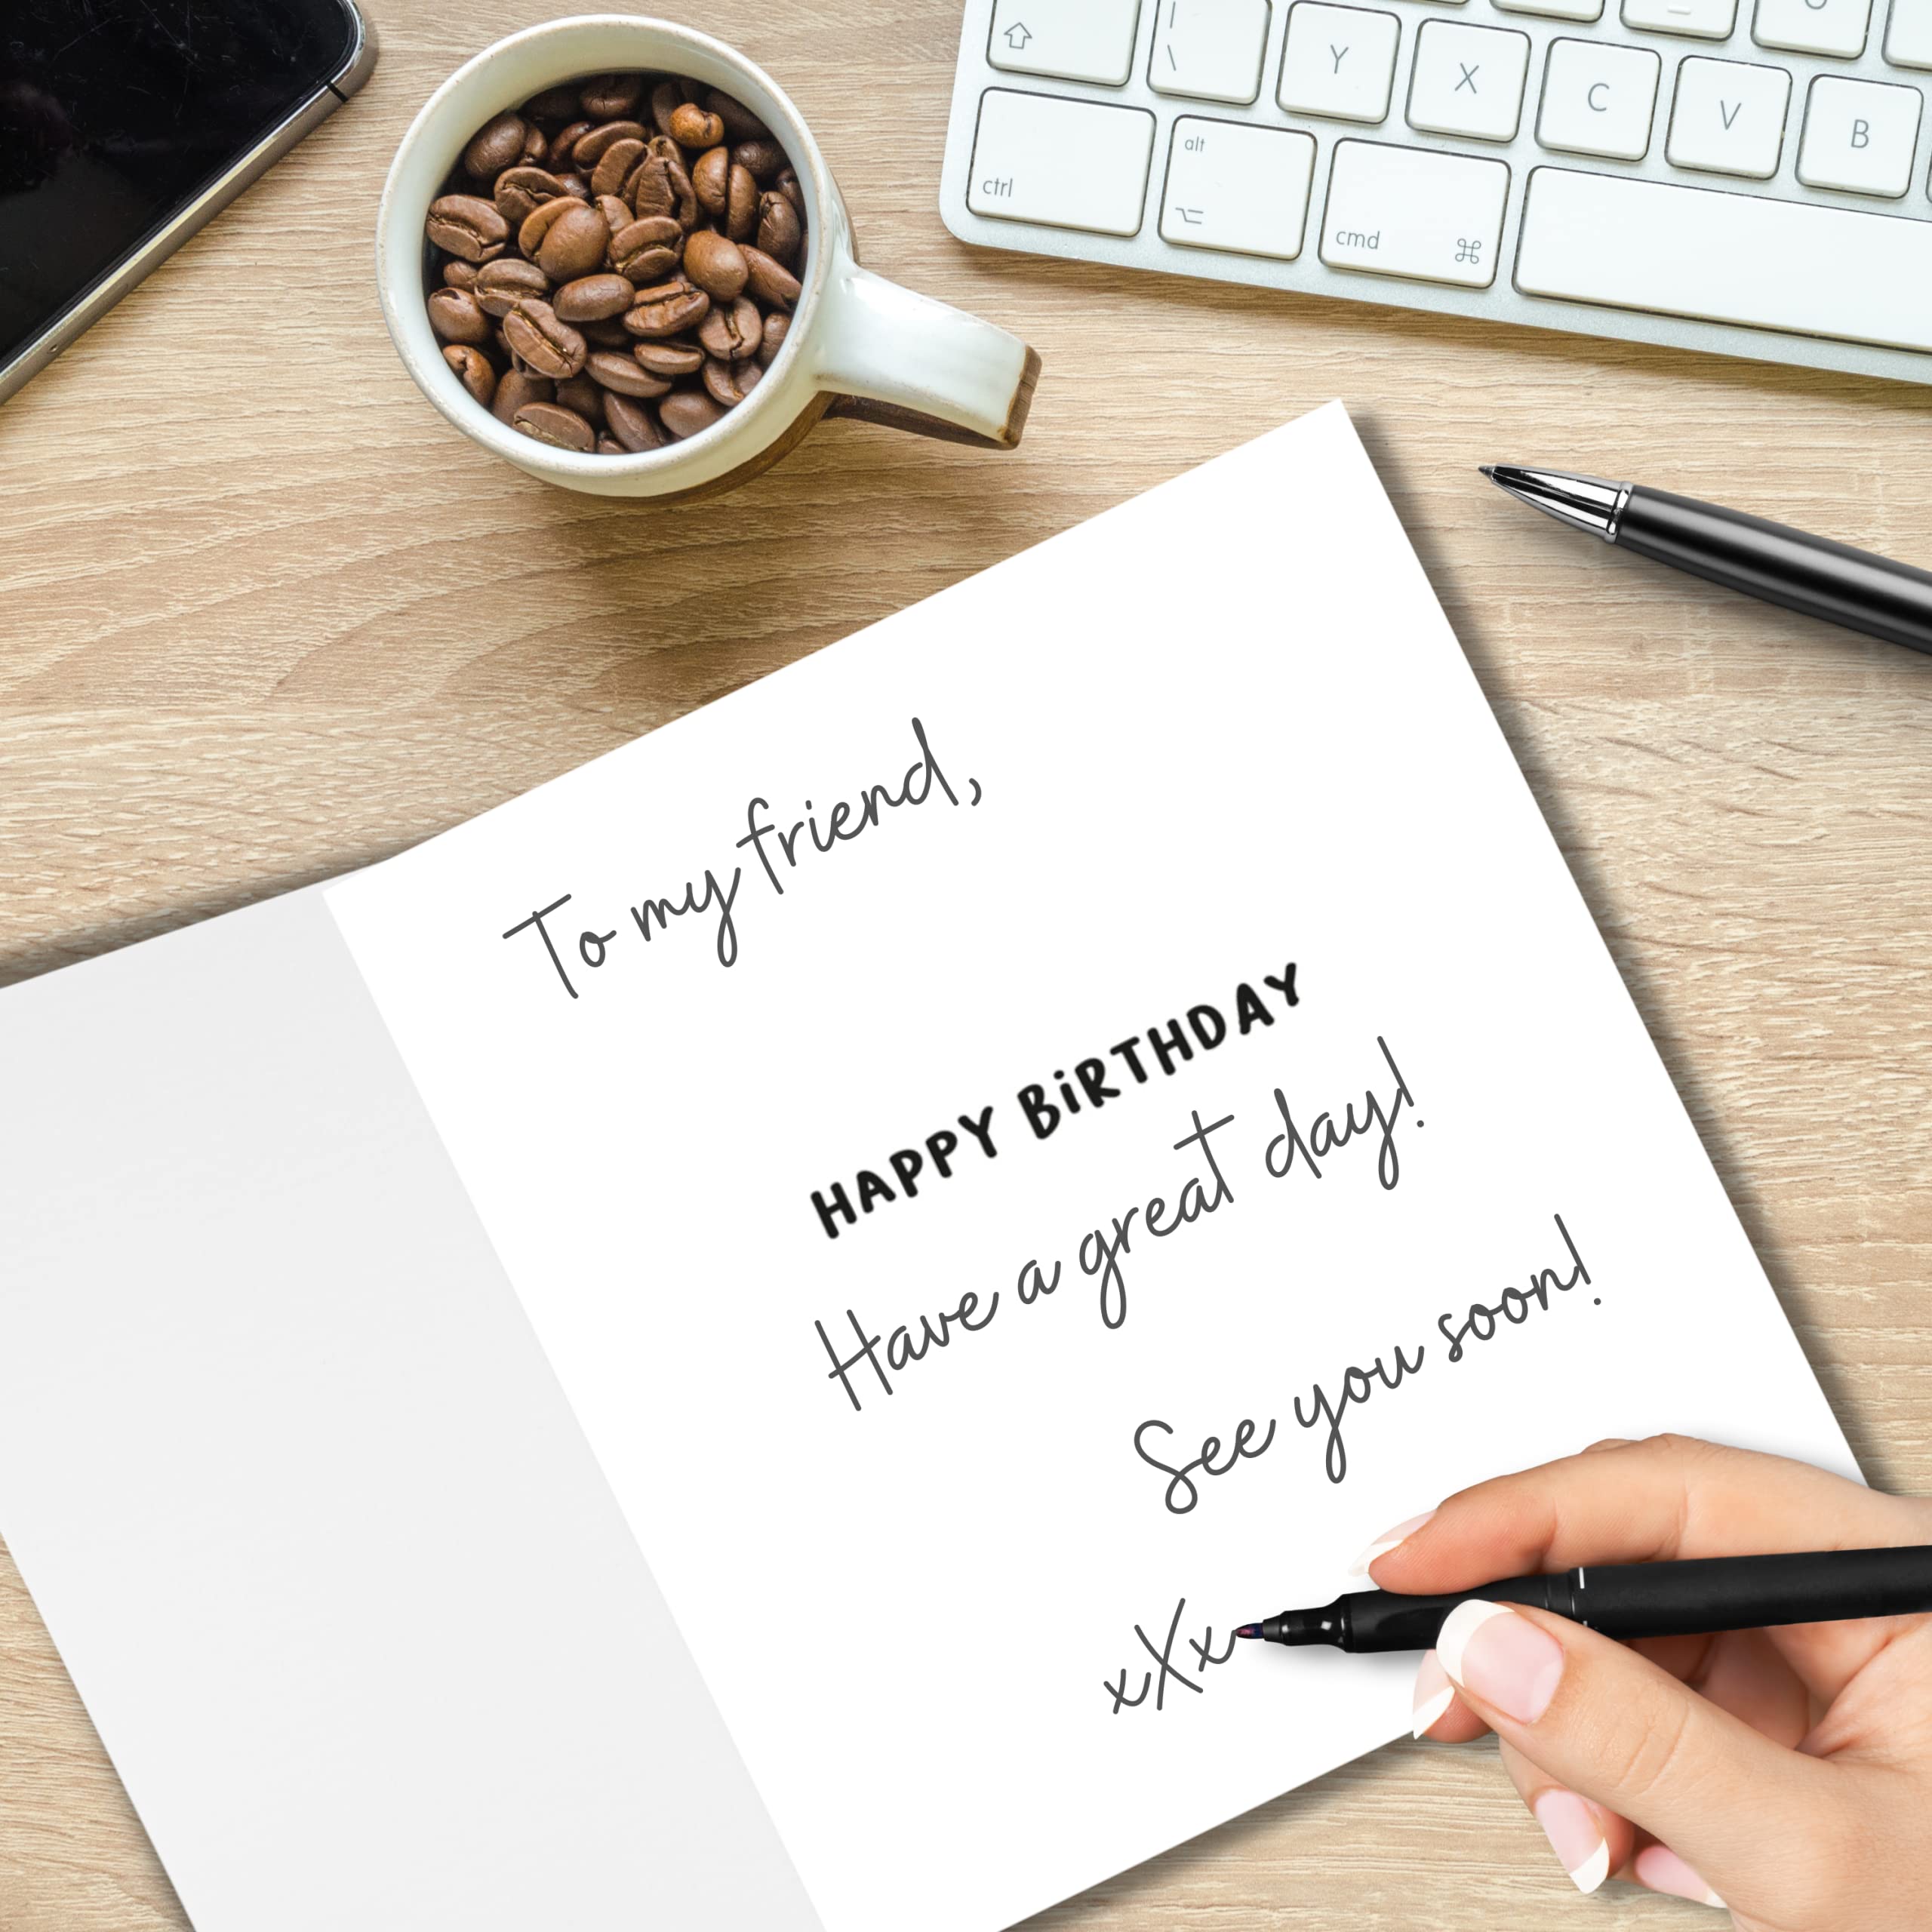 | \ Y X C V B
ctrl alt cmd
To my friend,
HAPPY BiRTHDAY
Have a great day!
See you soon!
xXx